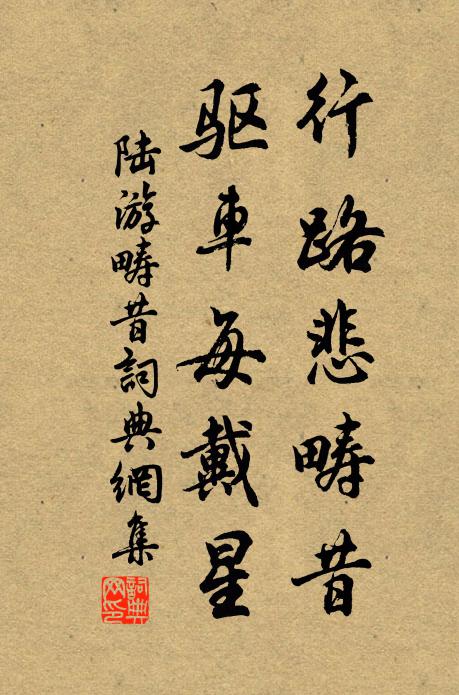 行路悲畴昔
驱車每戴星
陆游畴昔詞典網集
詞典网印